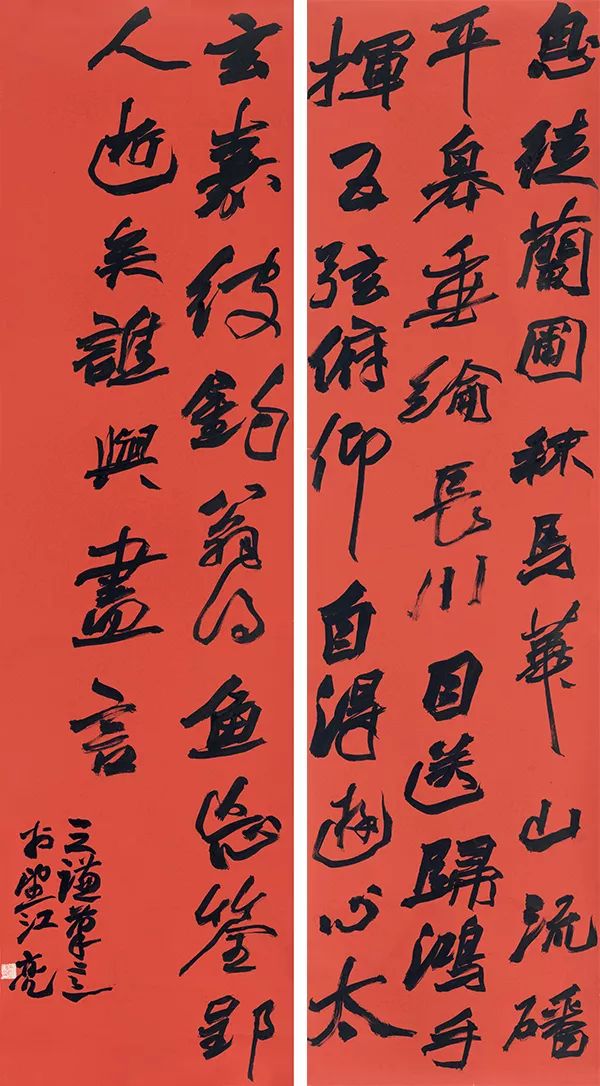 息徒蘭圃秣馬華山流磻
平皋垂綸長川目送歸鴻手
揮五弦俯仰自得遊心太
玄嘉彼釣翁得魚忘筌郢
人逝矣誰與盡言
於望江亮